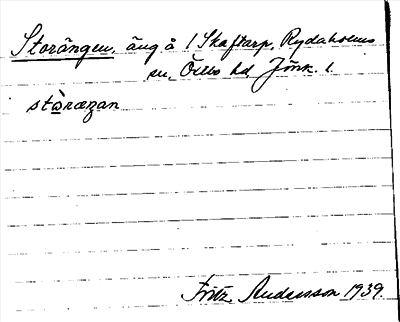 Storängen, äng å 1 Skaftarp, Rydaholms
sn, Östbo hd Jönk. l.
stòræŋan
Fritz Andersson 1939.